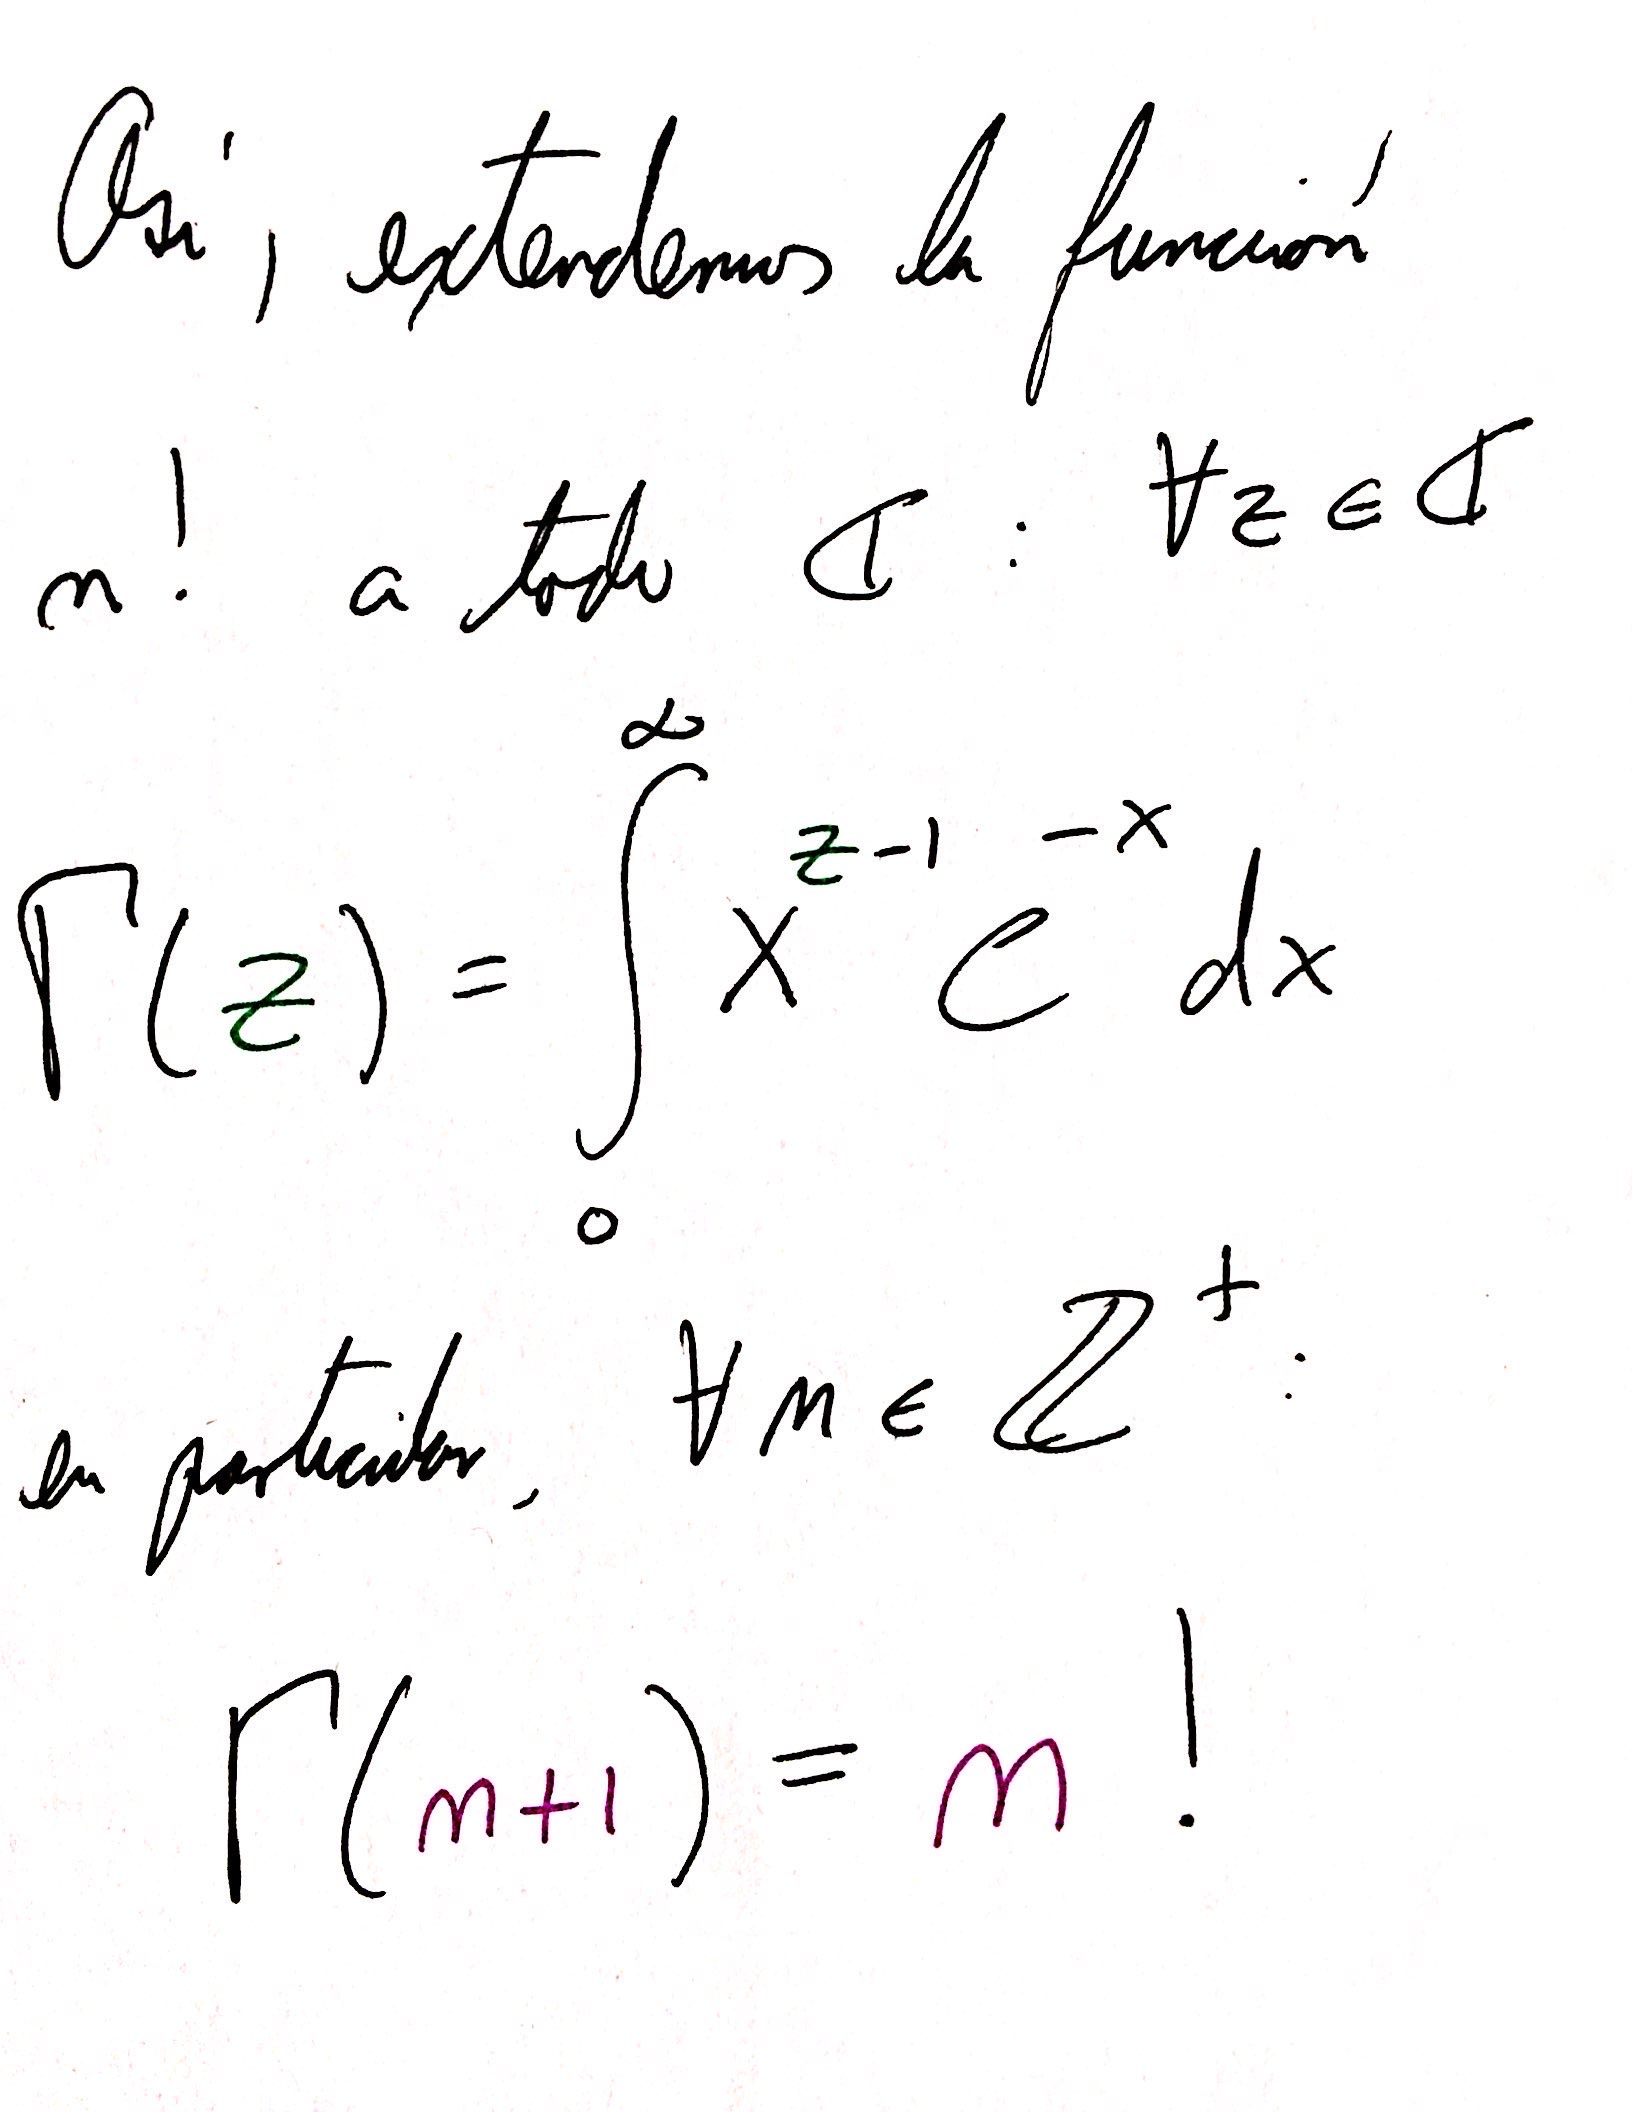 Así, extendemos la función
n! a todo ℂ : ∀z ∈ ℂ
Γ(z) = ∫₀^∞ x^{z-1} e^{-x} dx
en particular, ∀ n ∈ ℤ⁺ :
Γ(n+1) = n!